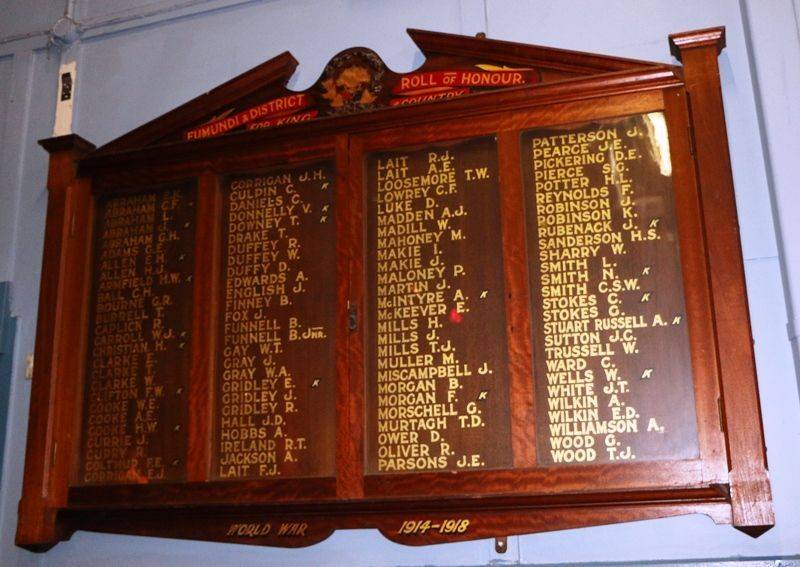 EUMUNDI & DISTRICT
ROLL OF HONOUR.
FOR KING
& COUNTRY
ABRAHAM
ABRAHAM C.F.
ABRAHAM L.
ABRAHAM J.
ABRAHAM G.H.
ADAMS G.E.
ALLEN E.H.
ALLEN H.J.
ARMFIELD H.W. K
BALL C.H.
BOURNE G.R.
BURRELL T.
CAPLICK R.
CARROLL W.J. K
CHRISTIAN H. K
CLARKE E.
CLARKE T.
CLARKE W.
CLIFTON F.W. K
COOKE W.E.
COOKE E.
COOKE H.W. K
CURRIE J.
CURRY R.
COLTHUP F.E. K
CORRIGAN E.J.
CORRIGAN J.H.
CULPIN C. K
DANIELS C.
DONNELLY V. K
DOWNEY T. K
DRAKE T.
DUFFEY R.
DUFFEY W.
DUFFY D.
EDWARDS A.
ENGLISH J.
FINNEY B.
FOX J.
FUNNELL B.
FUNNELL B. JNR.
GAY W.T.
GRAY J.
GRAY W.A.
GRIDLEY E. K
GRIDLEY J.
GRIDLEY R.
HALL J.D.
HOBBS A.
IRELAND R.T.
JACKSON A.
LAIT F.J.
LAIT R.J.
LAIT A.E.
LOOSEMORE T.W.
LOWREY C.F. K
LUKE D.
MADDEN A.J.
MADILL W.
MAHONEY M.
MAKIE J.
MAKIE J.
MALONEY P.
MARTIN J.
McINTYRE A. K
McKEEVER E.
MILLS H.
MILLS J.
MILLS T.J.
MULLER M.
MISCAMPBELL J.
MORGAN B.
MORGAN F. K
MORSCHELL G.
MURTAGH T.D.
OWER D.
OLIVER R.
PARSONS J.E.
PATTERSON J.
PEARCE J.E.
PICKERING D.E.
PIERCE S.G.
POTTER H.L.
REYNOLDS F.
ROBINSON J.
ROBINSON K.
RUBENACK J. K
SANDERSON H.S.
SHARRY W.
SMITH L.
SMITH N. K
SMITH C.S.W.
STOKES C. K
STOKES G.
STUART RUSSELL A. K
SUTTON J.C.
TRUSSELL W.
WARD C.
WELLS W. K
WHITE J.T.
WILKIN A.
WILKIN E.D.
WILLIAMSON A.
WOOD G.
WOOD T.J.
WORLD WAR
1914-1918